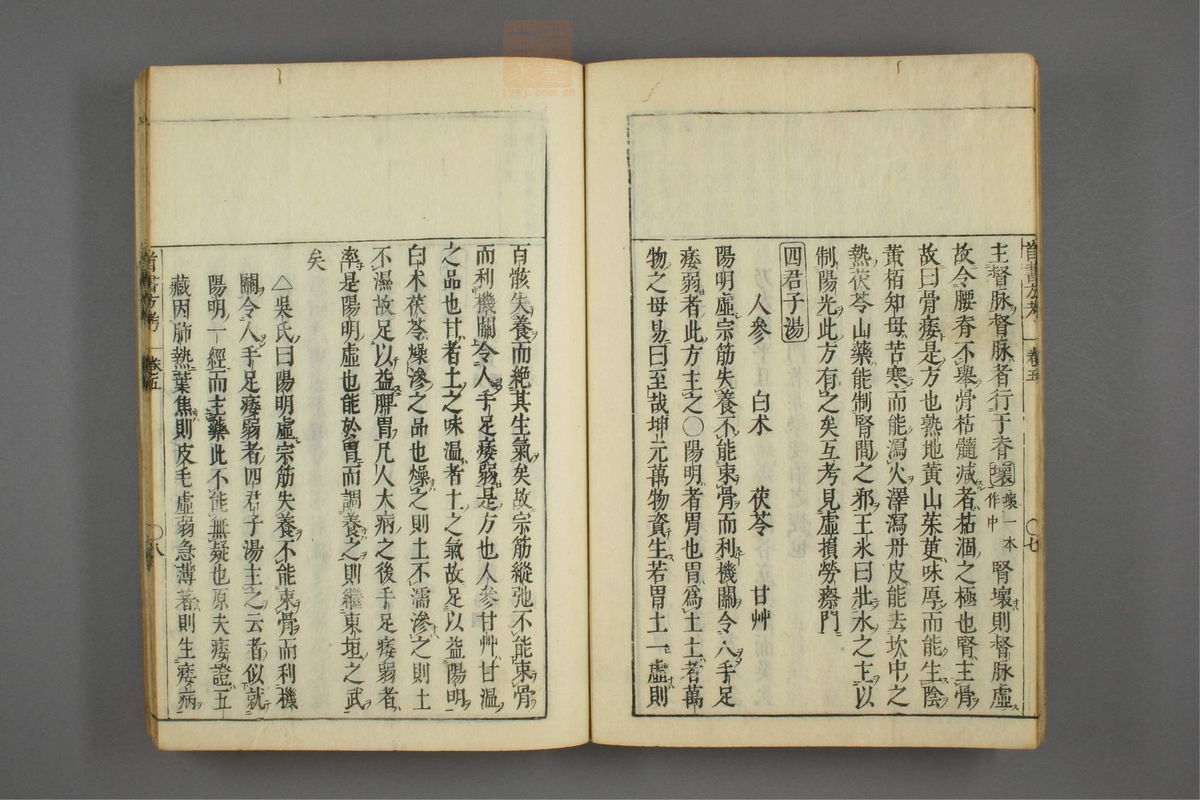 主督脉督脉者行于脊壞壞一本作中腎壞則督脉虛
故令腰脊不舉骨枯髓減者枯涸之極也腎主骨
故曰骨痿是方也熟地黃山茱萸味厚而能生陰
黃栢知母苦寒而能瀉火澤瀉丹皮能去坎中之
熱茯苓山藥能制腎間之邪王氷曰壯水之主以
制陽光此方有之矣互考見虛損勞瘵門
四君子湯
人參　白术　茯苓　甘艸
陽明虛宗筋失養不能束骨而利機關令人手足
痿弱者此方主之〇陽明者胃也胃爲土土者萬
物之母易曰至哉坤元萬物資生若胃土一虛則
卷五
〇七
百骸失養而絶其生氣矣故宗筋縱弛不能束骨
而利機關令人手足痿弱是方也人參甘艸甘温
之品也甘者土之味温者土之氣故足以益陽明
白术茯苓燥滲之品也燥之則土不濡滲之則土
不濕故足以益脾胃凡人大病之後手足痿弱者
率是陽明虛也能於胃而調養之則繼東垣之武
矣
△吳氏曰陽明虛宗筋失養不能束骨而利機
關令人手足痿弱者四君子湯主之云者似就
陽明一經而主藥此不能無疑也原夫痿證五
藏因肺熱葉焦則皮毛虛弱急薄著則生痿病
醫方考
卷五
〇八
zyyj.com.cn